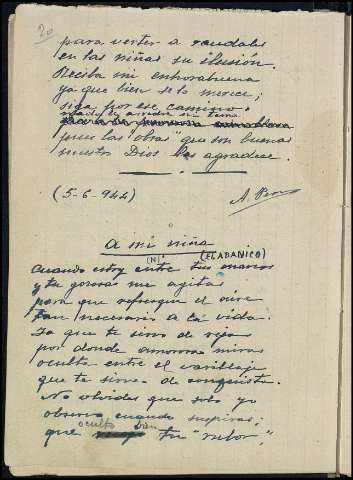 20
para verter a raudales
en las niñas su ilusión.
Reciba mi enhorabuena
ya que bien se lo merece;
siga por ese camino
nuestro Dios las agradece.
pues las "obras" que son buenas
(5-6-944)
A. Veo
A mi niña
(N) (EL ABANICO)
Cuando estoy entre tus manos
y tu gozosa me agitas
para que refresque el aire
tan necesario a la vida.
Ya que te sirvo de reja
por donde amorosa miras
oculta entre el varillaje
que te sirve de conquista.
No olvides que solo yo
observo cuando suspiras;
que oculto tu "rubor,"